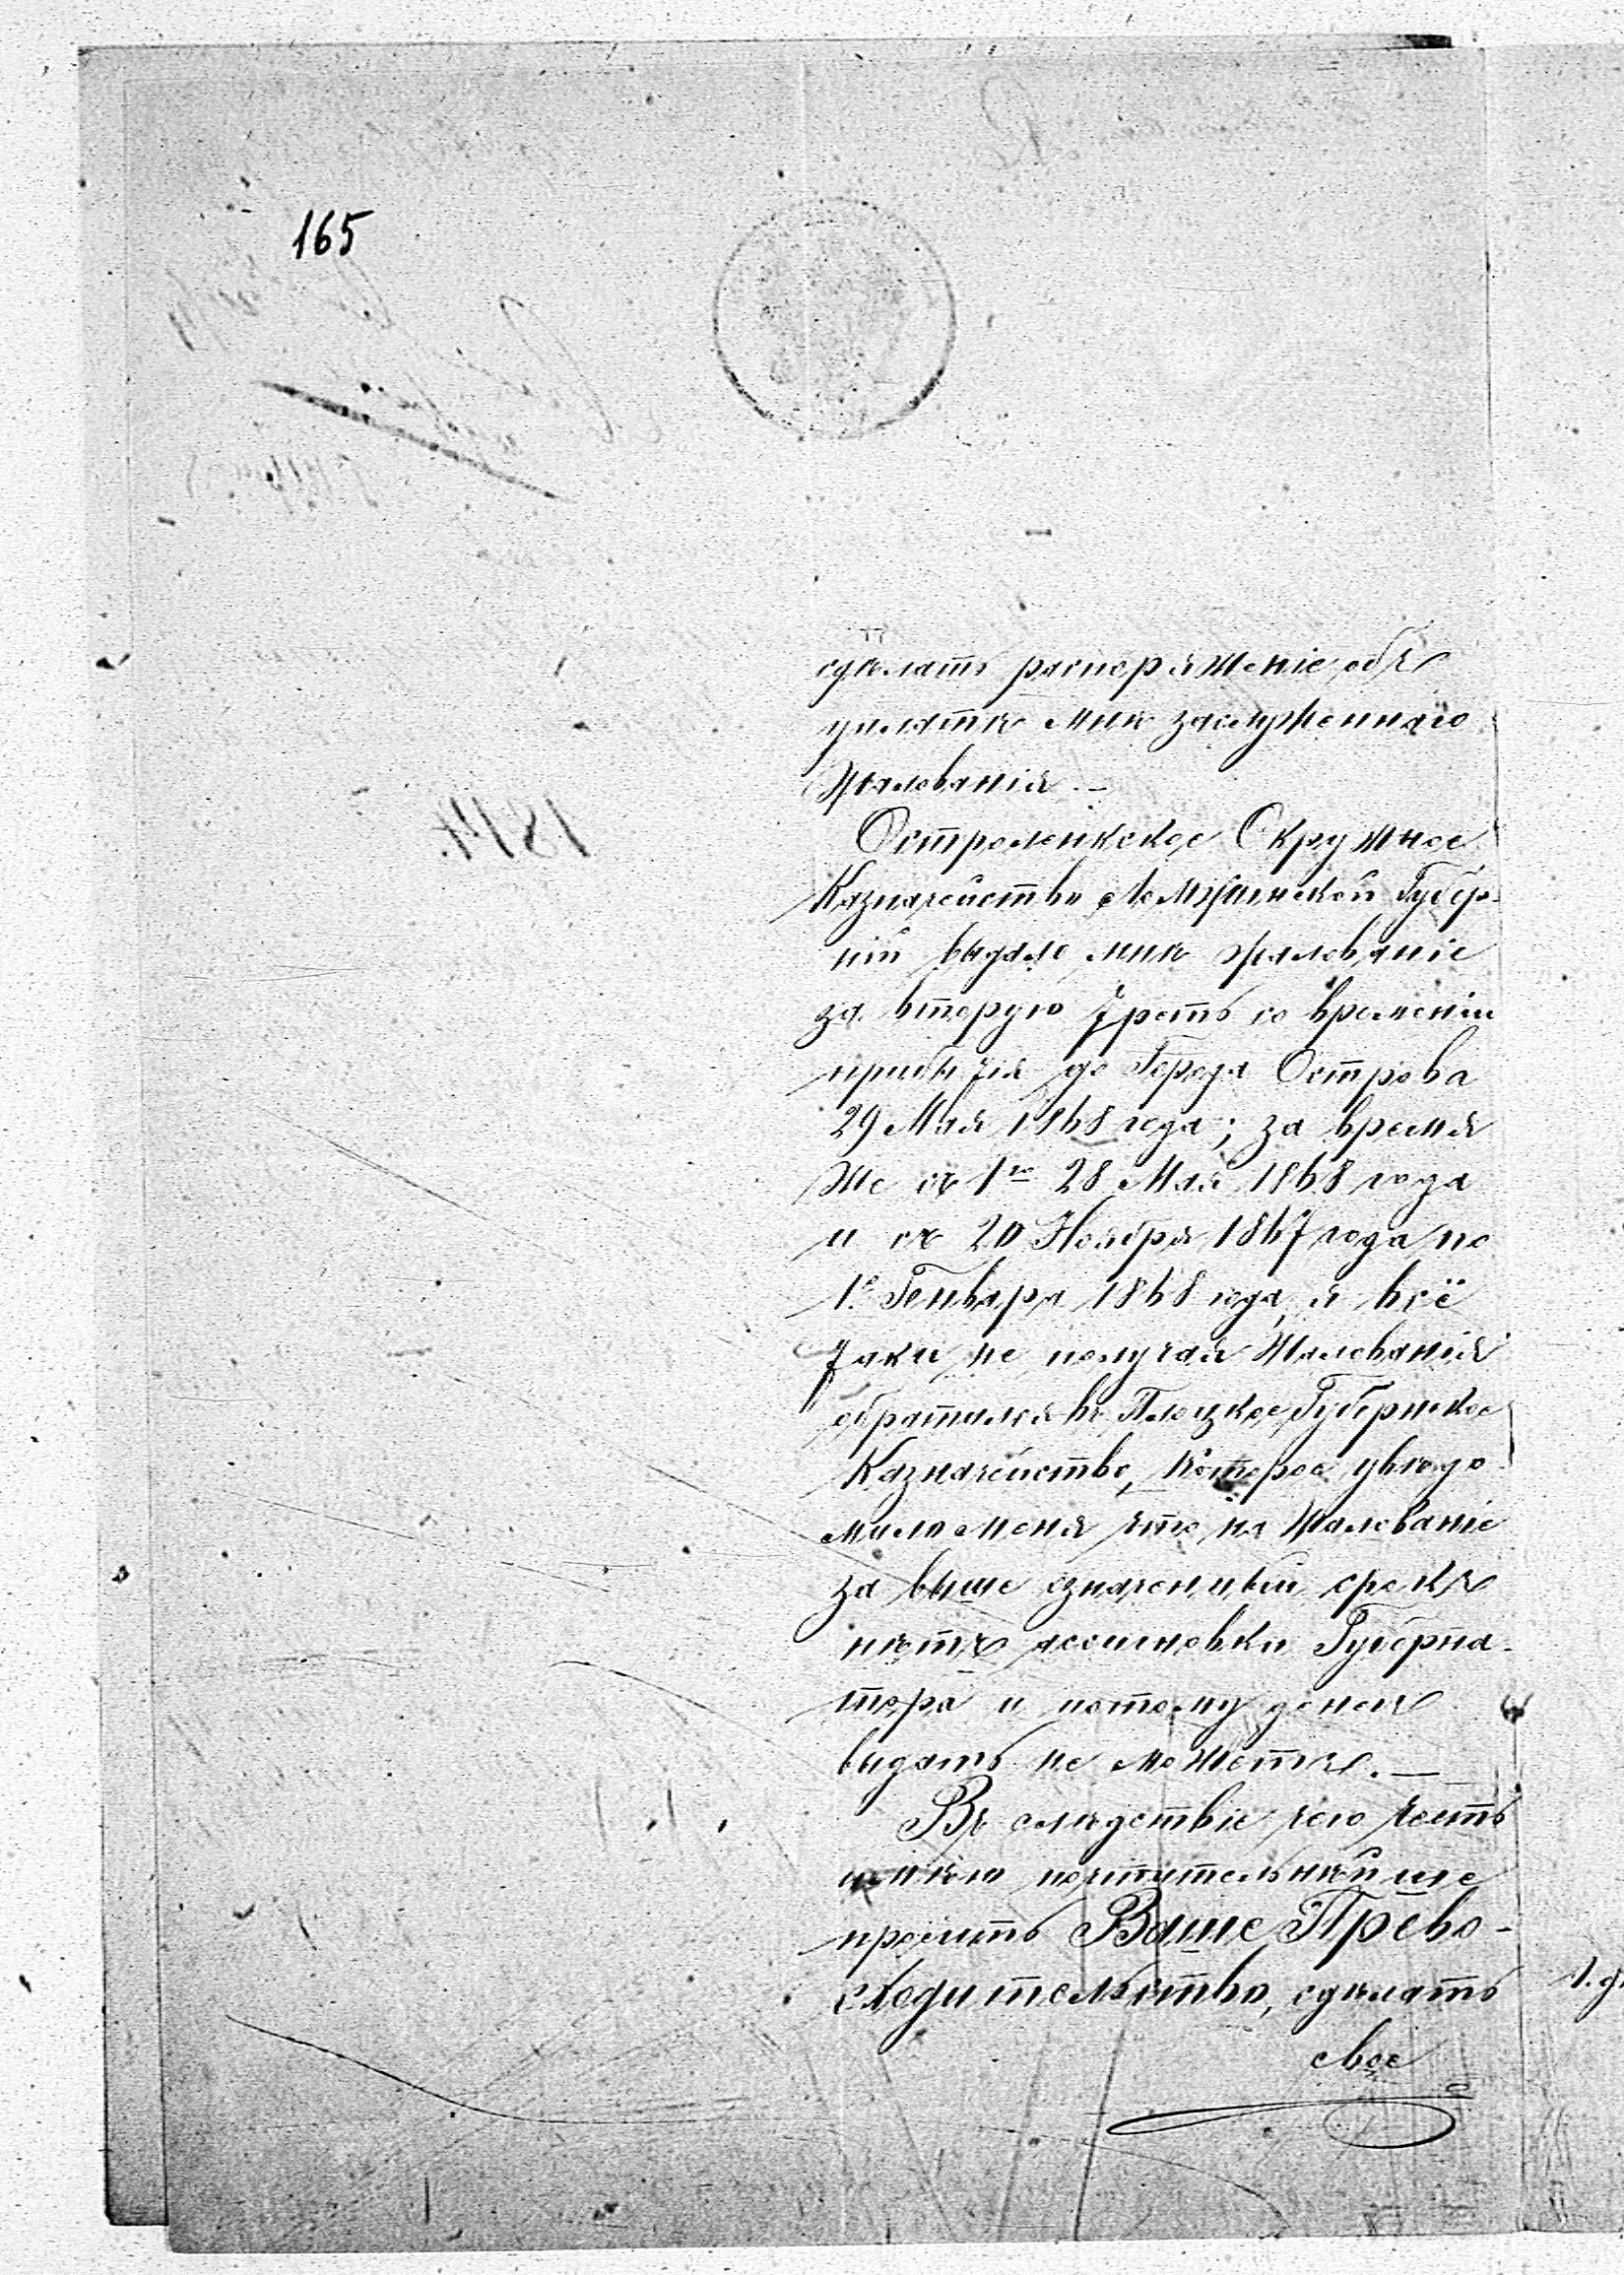 165
сдѣлать распоряженіе объ
уплатѣ мнѣ заслуженнаго
жалованія. —
Остроленкское Окружное
Казначейство Ломжинской Губер-
ній выдало мнѣ жалованіе
за вторую треть со времени
прибытія до Города Острова
29 Мая 1868 года; за время
же съ 1го 28 Мая 1868 года
и съ 20 Ноября 1867 года по
1е Генваря 1868 года, я всё
таки не получая жалованія
обратился въ Плоцкое Губернское
Казначейство, которое увѣдо-
мило меня что на жалованіе
за выше означенный срокъ
нѣтъ ассигновки Губерна-
тора и потому денегъ
выдать не можетъ. —
Въ слѣдствіе чего честь
имѣю почтительнѣйше
просить Ваше Прево-
сходительство, сдѣлать
свое